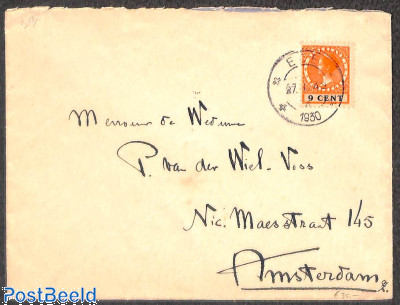 9 CENT
1930
Mevrouw de Weduwe
P. van der Wiel-Voss
Nic. Maesstraat 145
Amsterdam
PostBeeld